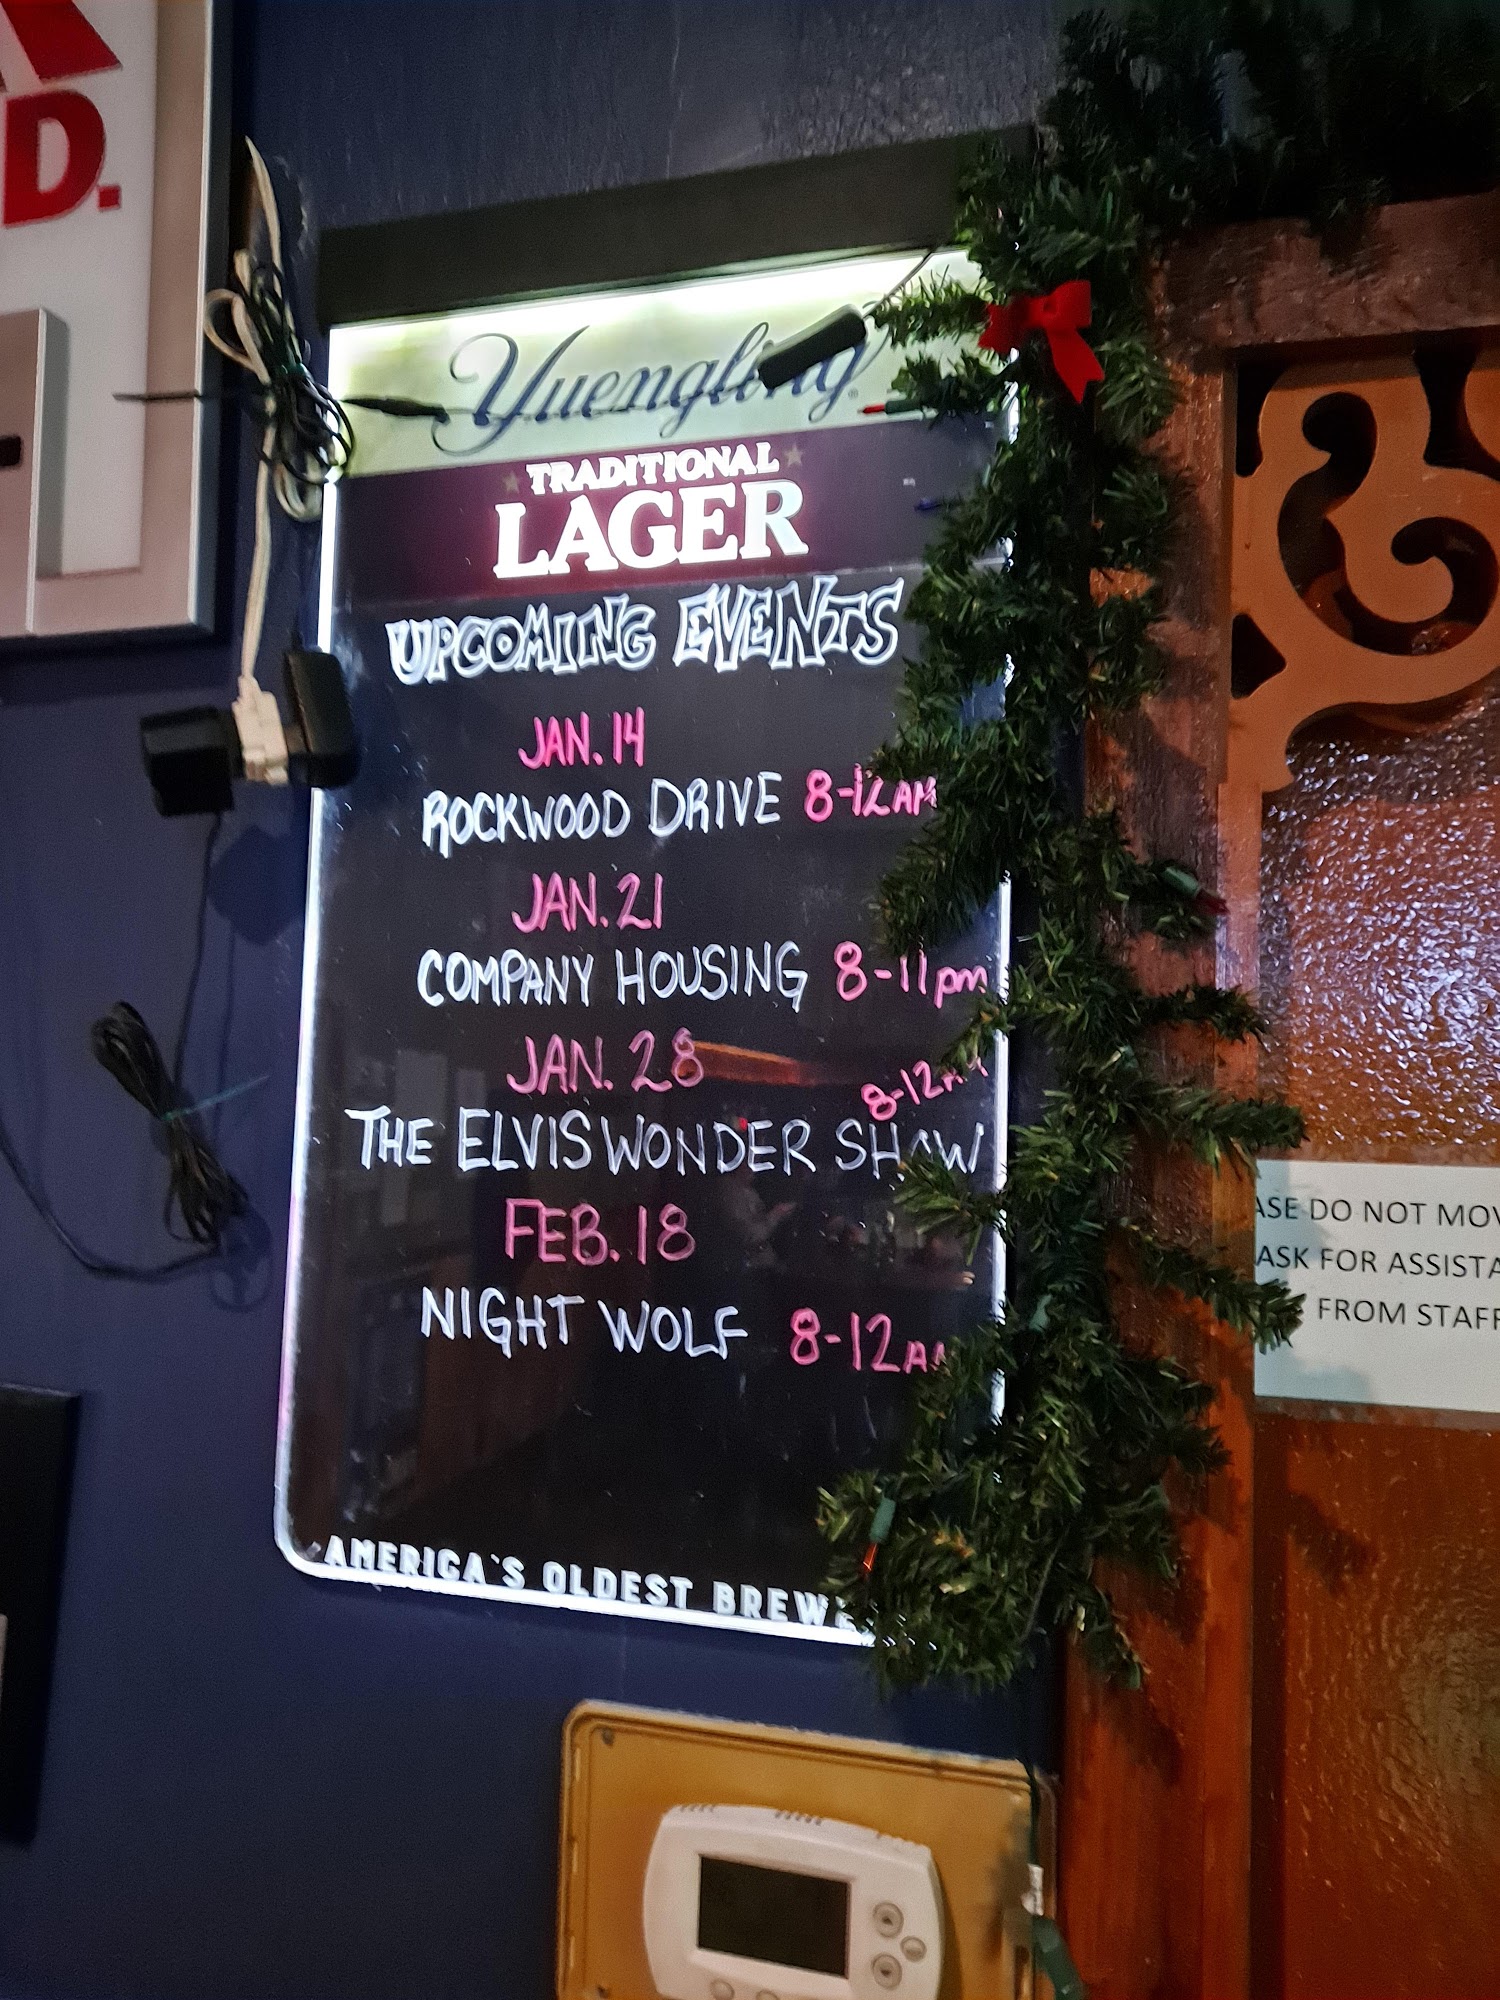 D.
Yuengling
TRADITIONAL
LAGER
UPCOMING EVENTS
JAN. 14
ROCKWOOD DRIVE 8-12AM
JAN. 21
COMPANY HOUSING 8-11pm
JAN. 28
8-12AM
THE ELVIS WONDER SHOW
FEB. 18
NIGHT WOLF 8-12AM
AMERICA'S OLDEST
DO NOT
ASK FOR
FROM STAFF